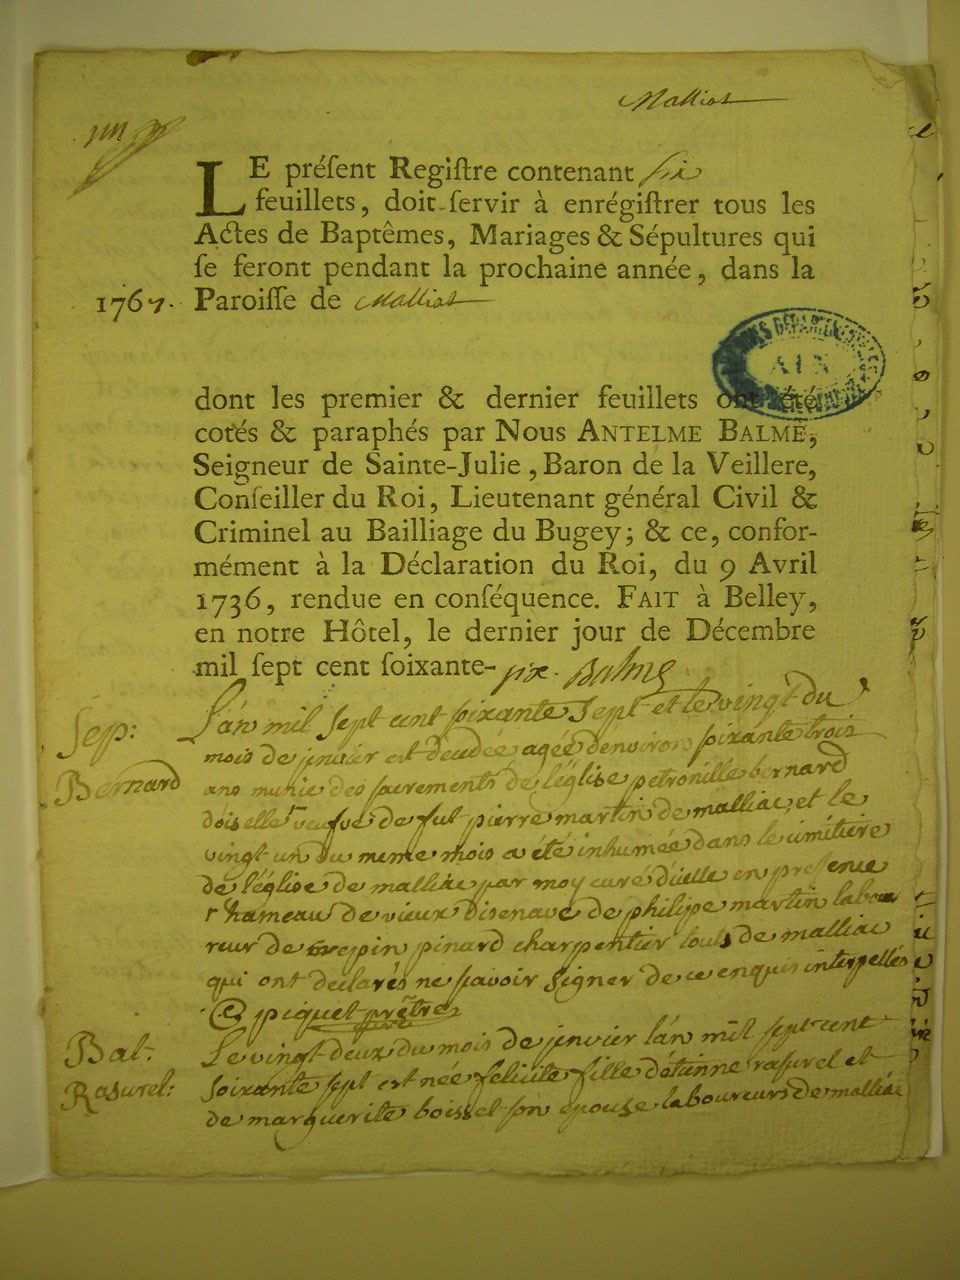 Malliat
LE préſent Regiſtre contenant ſix
feuillets, doit ſervir à enrégiſtrer tous les
Actes de Baptêmes, Mariages & Sépultures qui
ſe feront pendant la prochaine année, dans la
1767. Paroiſſe de Malliat
AIN
dont les premier & dernier feuillets ont été
cotés & paraphés par Nous ANTELME BALME,
Seigneur de Sainte-Julie, Baron de la Veillere,
Conſeiller du Roi, Lieutenant général Civil &
Criminel au Bailliage du Bugey; & ce, confor-
mément à la Déclaration du Roi, du 9 Avril
1736, rendue en conſéquence. FAIT à Belley,
en notre Hôtel, le dernier jour de Décembre
mil ſept cent ſoixante-six. Balme
Sep: L'an mil sept cent soixante sept et le vingt du
mois de janvier est decedée agée denviron soixante trois
Bernard ans munie des sacrements de l'église petronille bernard
doiselle veufve de fut pierre martin de malliac, et le
vingt un du meme mois a été inhumée dans le cimitiere
de l'église de malliac par moy curé d'icelle en presence
d'hameau de vieux disenave de philippe martin labou
reur de crespin pinard charpentier touts de malliac
qui ont declarés ne savoir signer de ce enquis interpellés
piquet prêtre
Bat. Le vingt deux du mois de janvier l'an mil sept cent
Rasurel: soixante sept est née felicité fille d'étienne rasurel et
de marguerite boissel son epouse laboureurs de malliac